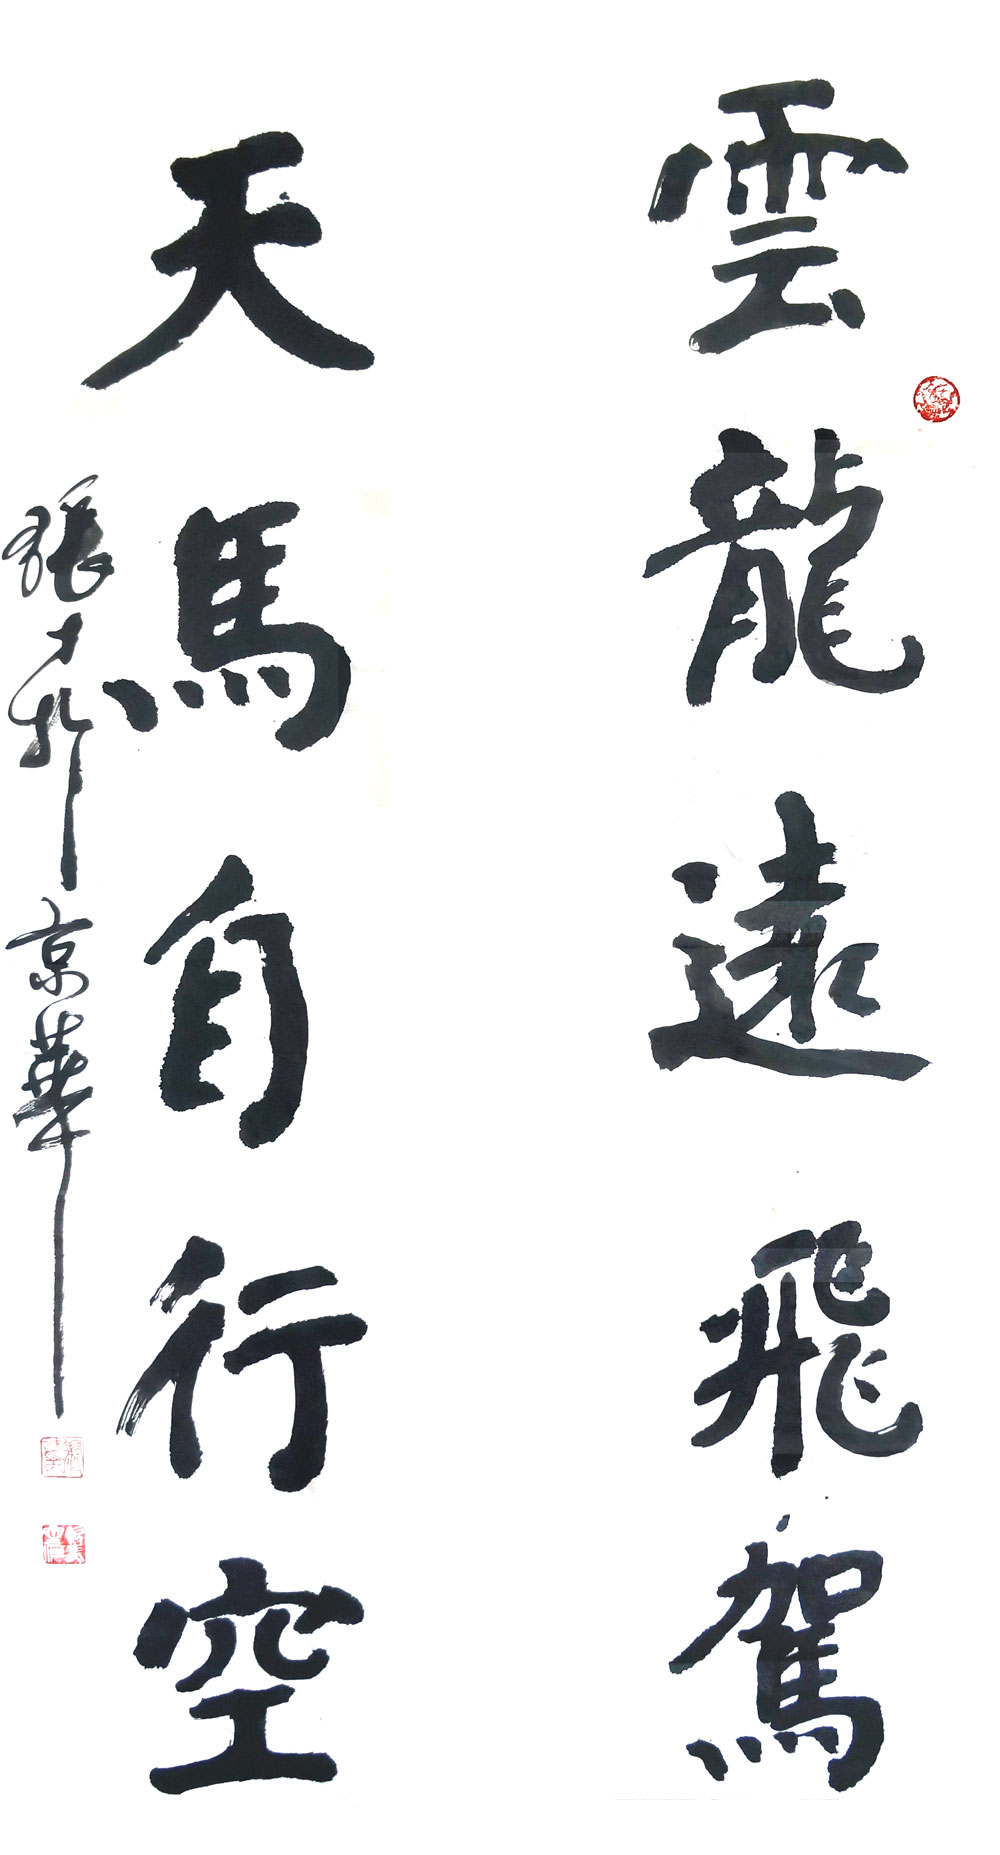 雲龍遠飛駕
天馬自行空
張才 京華